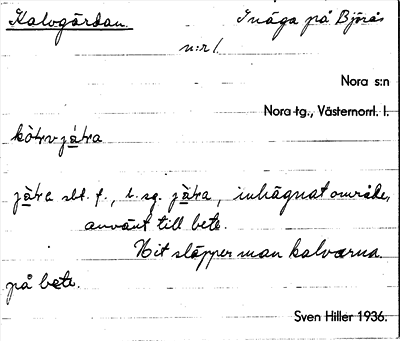 Kalvgårdan. Inäga på Björås
n:r 1.
Nora s:n
Nora tg., Västernorrl. l.
jàra sbt. f., b. sg. jàra, inhägnat område,
använt till bete.
Hit släpper man kalvarna
på bete.
Sven Hiller 1936.